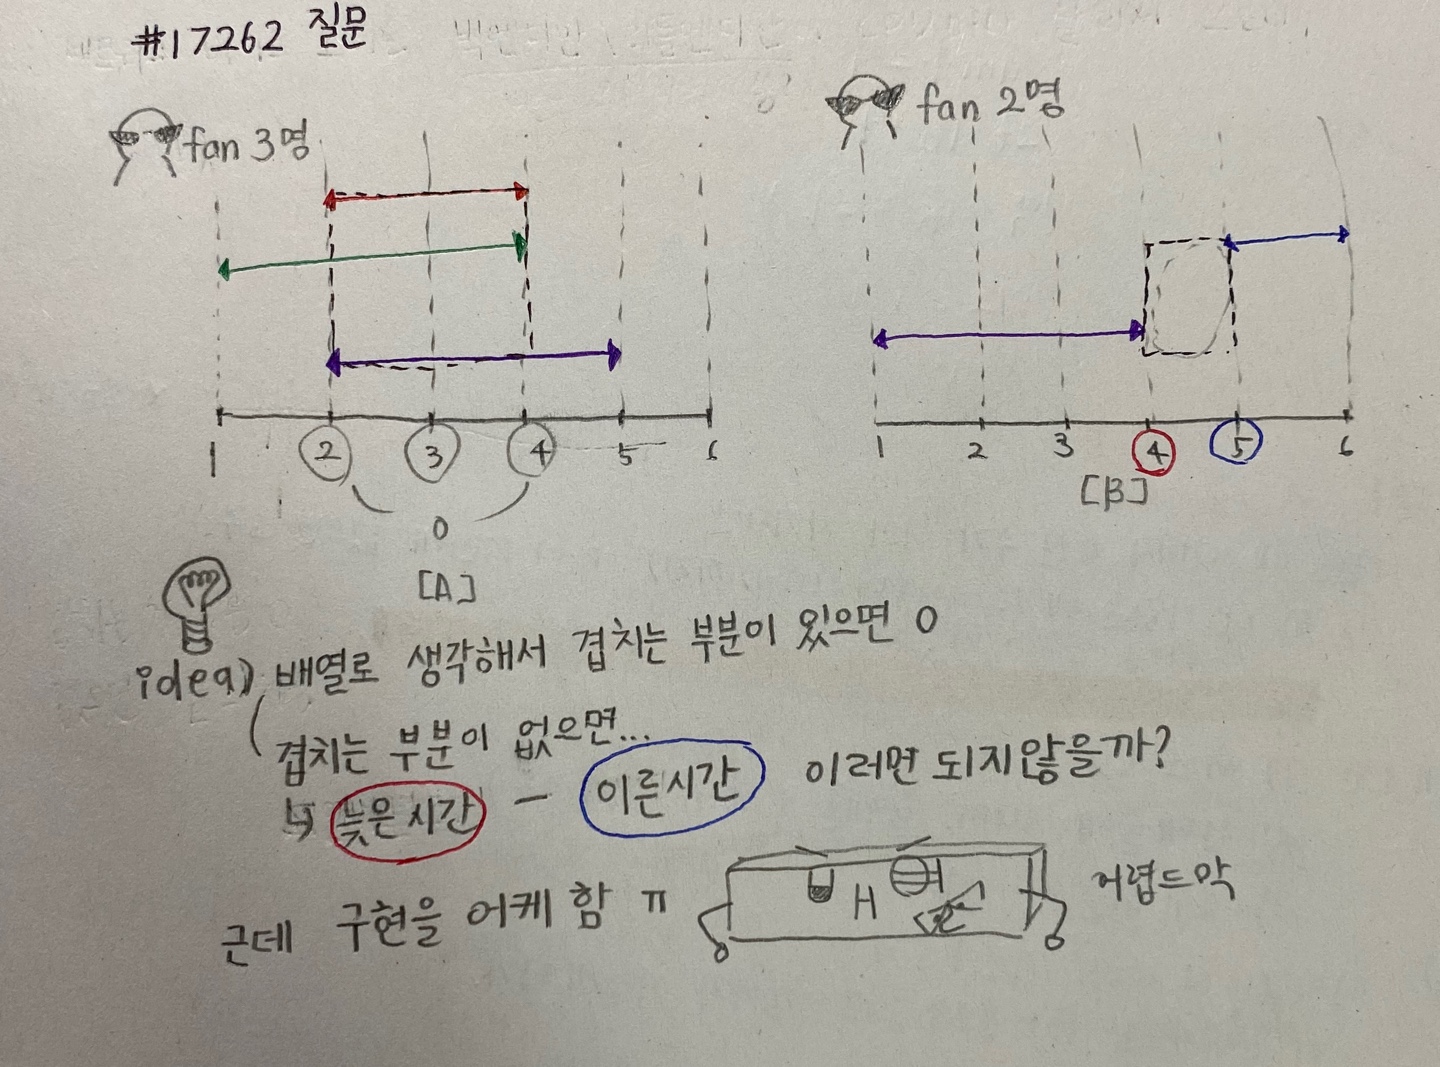 #17262 질문
fan 3명
1 2 3 4 5 6
0
[A]
fan 2명
1 2 3 4 5 6
[B]
idea) 배열로 생각해서 겹치는 부분이 있으면 0
겹치는 부분이 없으면...
↳ 늦은시간 - 이른시간 이러면 되지않을까?
근데 구현을 어케 함 ㅠ H 어렵드악